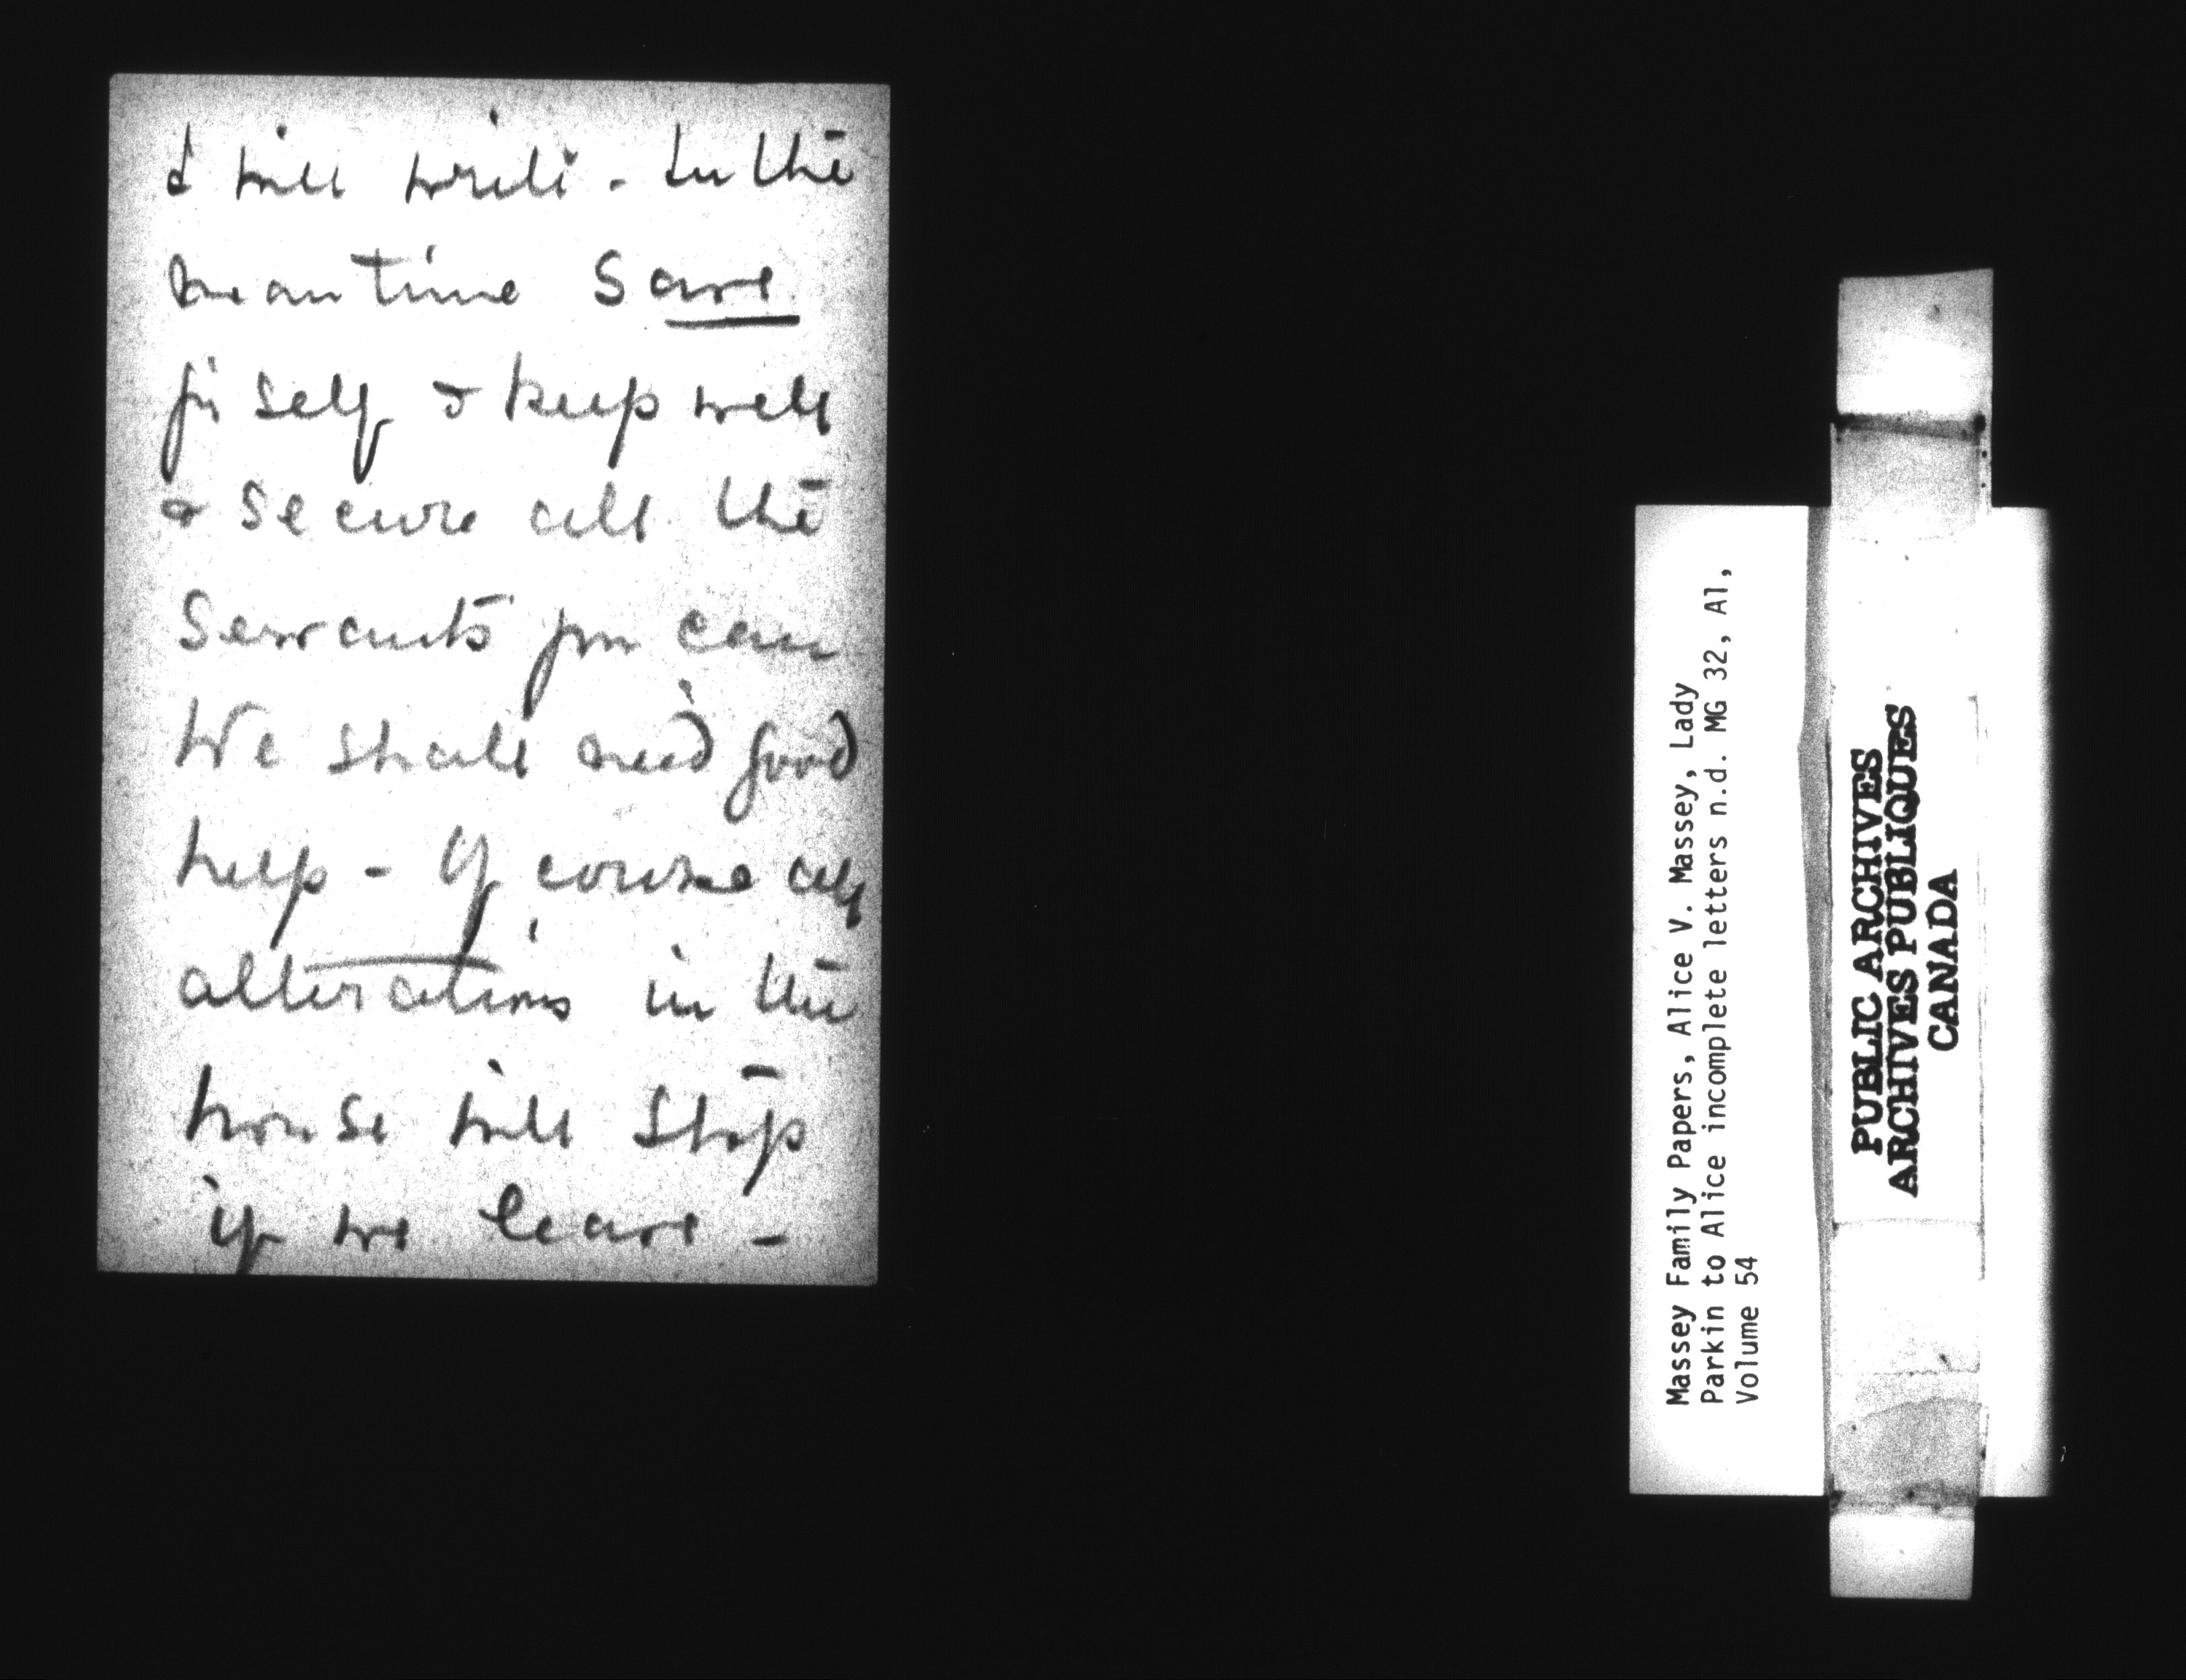 & will write. In the
meantime save
yr self & keep well
& secure all the
servants you can
We shall need good
help - Of course all
alterations in the
house will stop
if we leave -
Massey Family Papers, Alice V. Massey, Lady
Parkin to Alice incomplete letters n.d. MG 32, A1,
Volume 54
PUBLIC ARCHIVES
ARCHIVES PUBLIQUES
CANADA